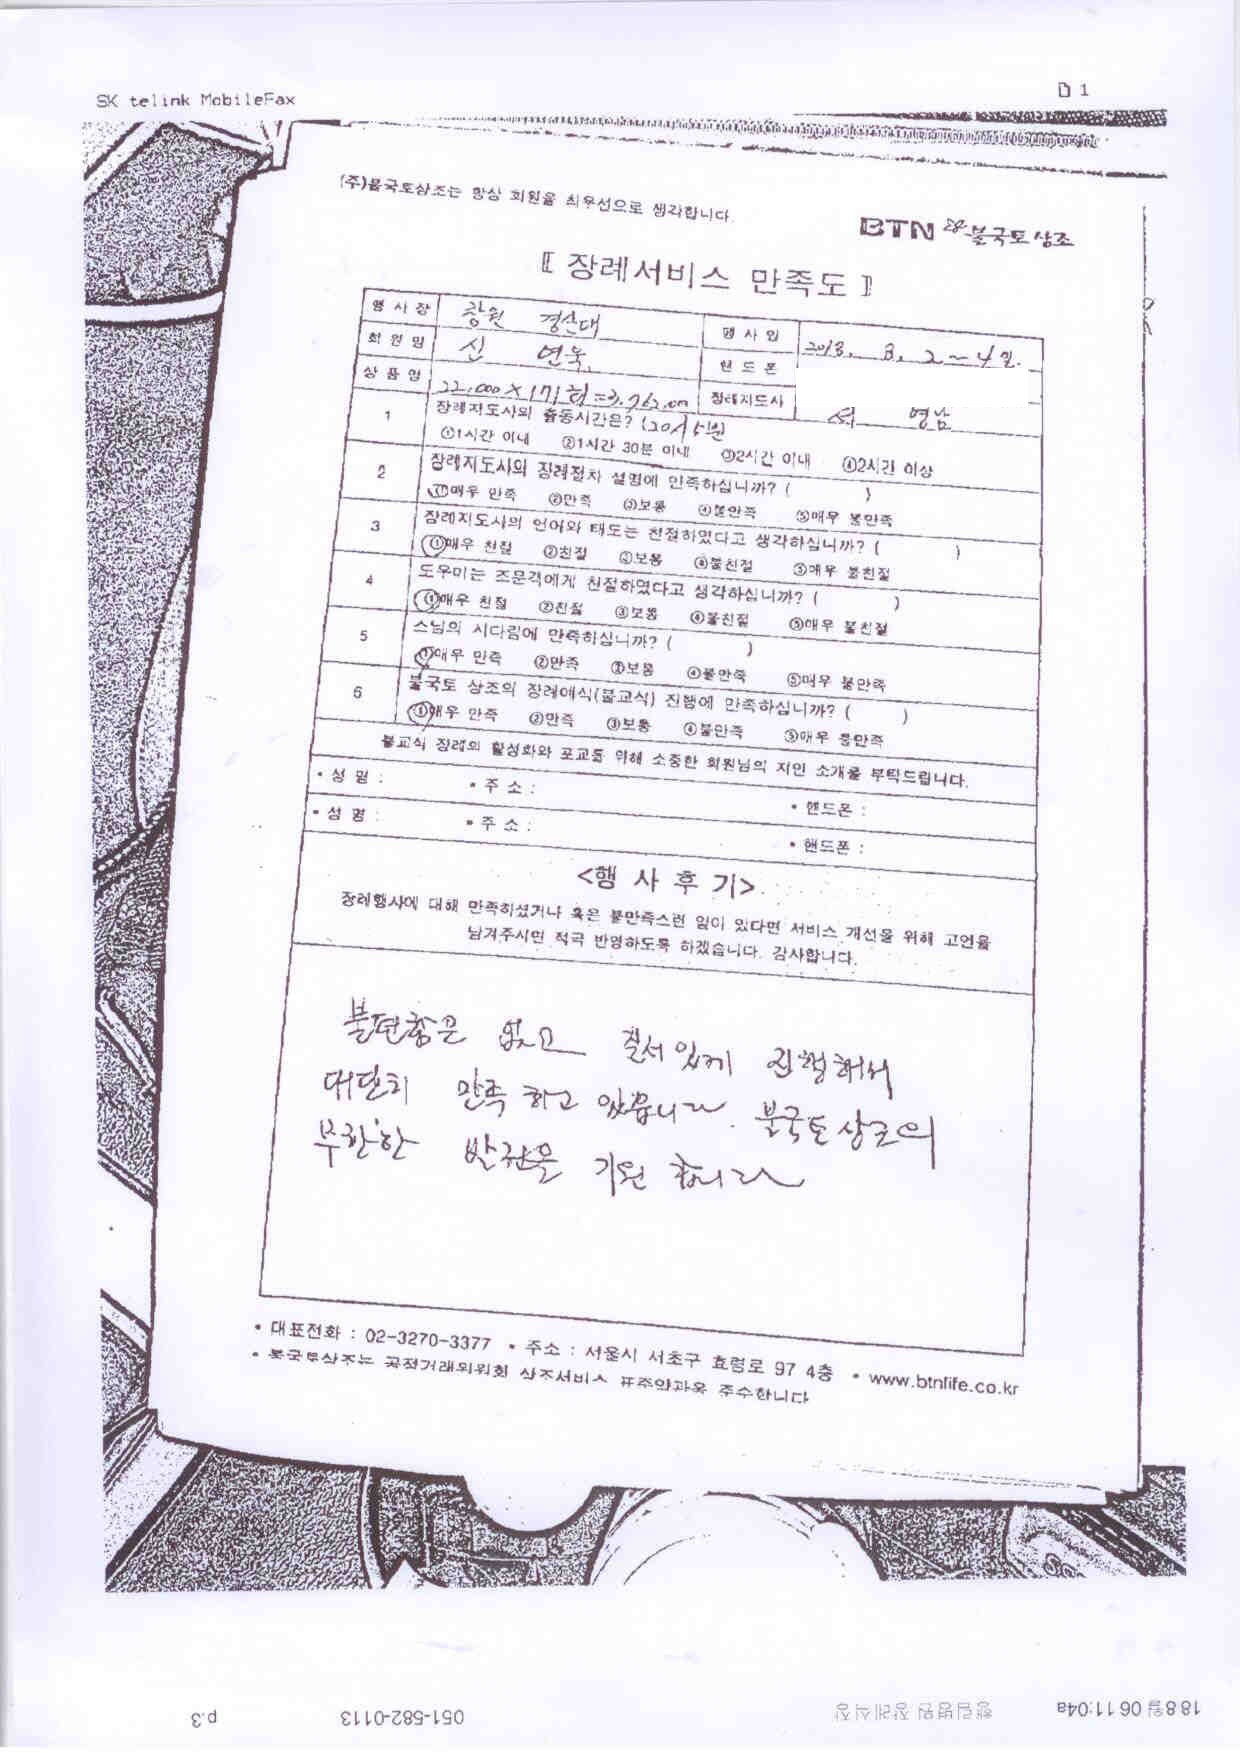 SK telink MobileFax
D 1
(주)불국토상조는 항상 회원을 최우선으로 생각합니다.
BTN 불국토상조
〖 장례서비스 만족도 〗
행 사 장 창원 경상대 행 사 일 2018. 8. 2 ~ 4 일.
회 원 명 신 연욱 핸 드 폰
상 품 명 22.000 × 171회 = 3.762.000 장례지도사 서 영남
1 장례지도사의 출동시간은? (20시 5분
①1시간 이내 ②1시간 30분 이내 ③2시간 이내 ④2시간 이상
2 장례지도사의 장례절차 설명에 만족하십니까? ( )
①매우 만족 ②만족 ③보통 ④불만족 ⑤매우 불만족
3 장례지도사의 언어와 태도는 친절하였다고 생각하십니까? ( )
①매우 친절 ②친절 ③보통 ④불친절 ⑤매우 불친절
4 도우미는 조문객에게 친절하였다고 생각하십니까? ( )
①매우 친절 ②친절 ③보통 ④불친절 ⑤매우 불친절
5 스님의 시다림에 만족하십니까? ( )
①매우 만족 ②만족 ③보통 ④불만족 ⑤매우 불만족
6 불국토 상조의 장례예식(불교식) 진행에 만족하십니까? ( )
①매우 만족 ②만족 ③보통 ④불만족 ⑤매우 불만족
불교식 장례의 활성화와 포교를 위해 소중한 회원님의 지인 소개를 부탁드립니다.
• 성 명 : • 주 소 : • 핸드폰 :
• 성 명 : • 주 소 : • 핸드폰 :
<행 사 후 기>
장례행사에 대해 만족하셨거나 혹은 불만족스런 일이 있다면 서비스 개선을 위해 고언을
남겨주시면 적극 반영하도록 하겠습니다. 감사합니다.
불편함은 없고 질서있게 진행해서
대단히 만족 하고 있읍니다. 불국토상조의
무한한 발전을 기원 합니다
• 대표전화 : 02-3270-3377 • 주소 : 서울시 서초구 효령로 97 4층 • www.btnlife.co.kr
• 불국토상조는 공정거래위원회 상조서비스 표준약관을 준수합니다
18 8월 06 11:04a 행림병원 장례식장 051-582-0113 p.3